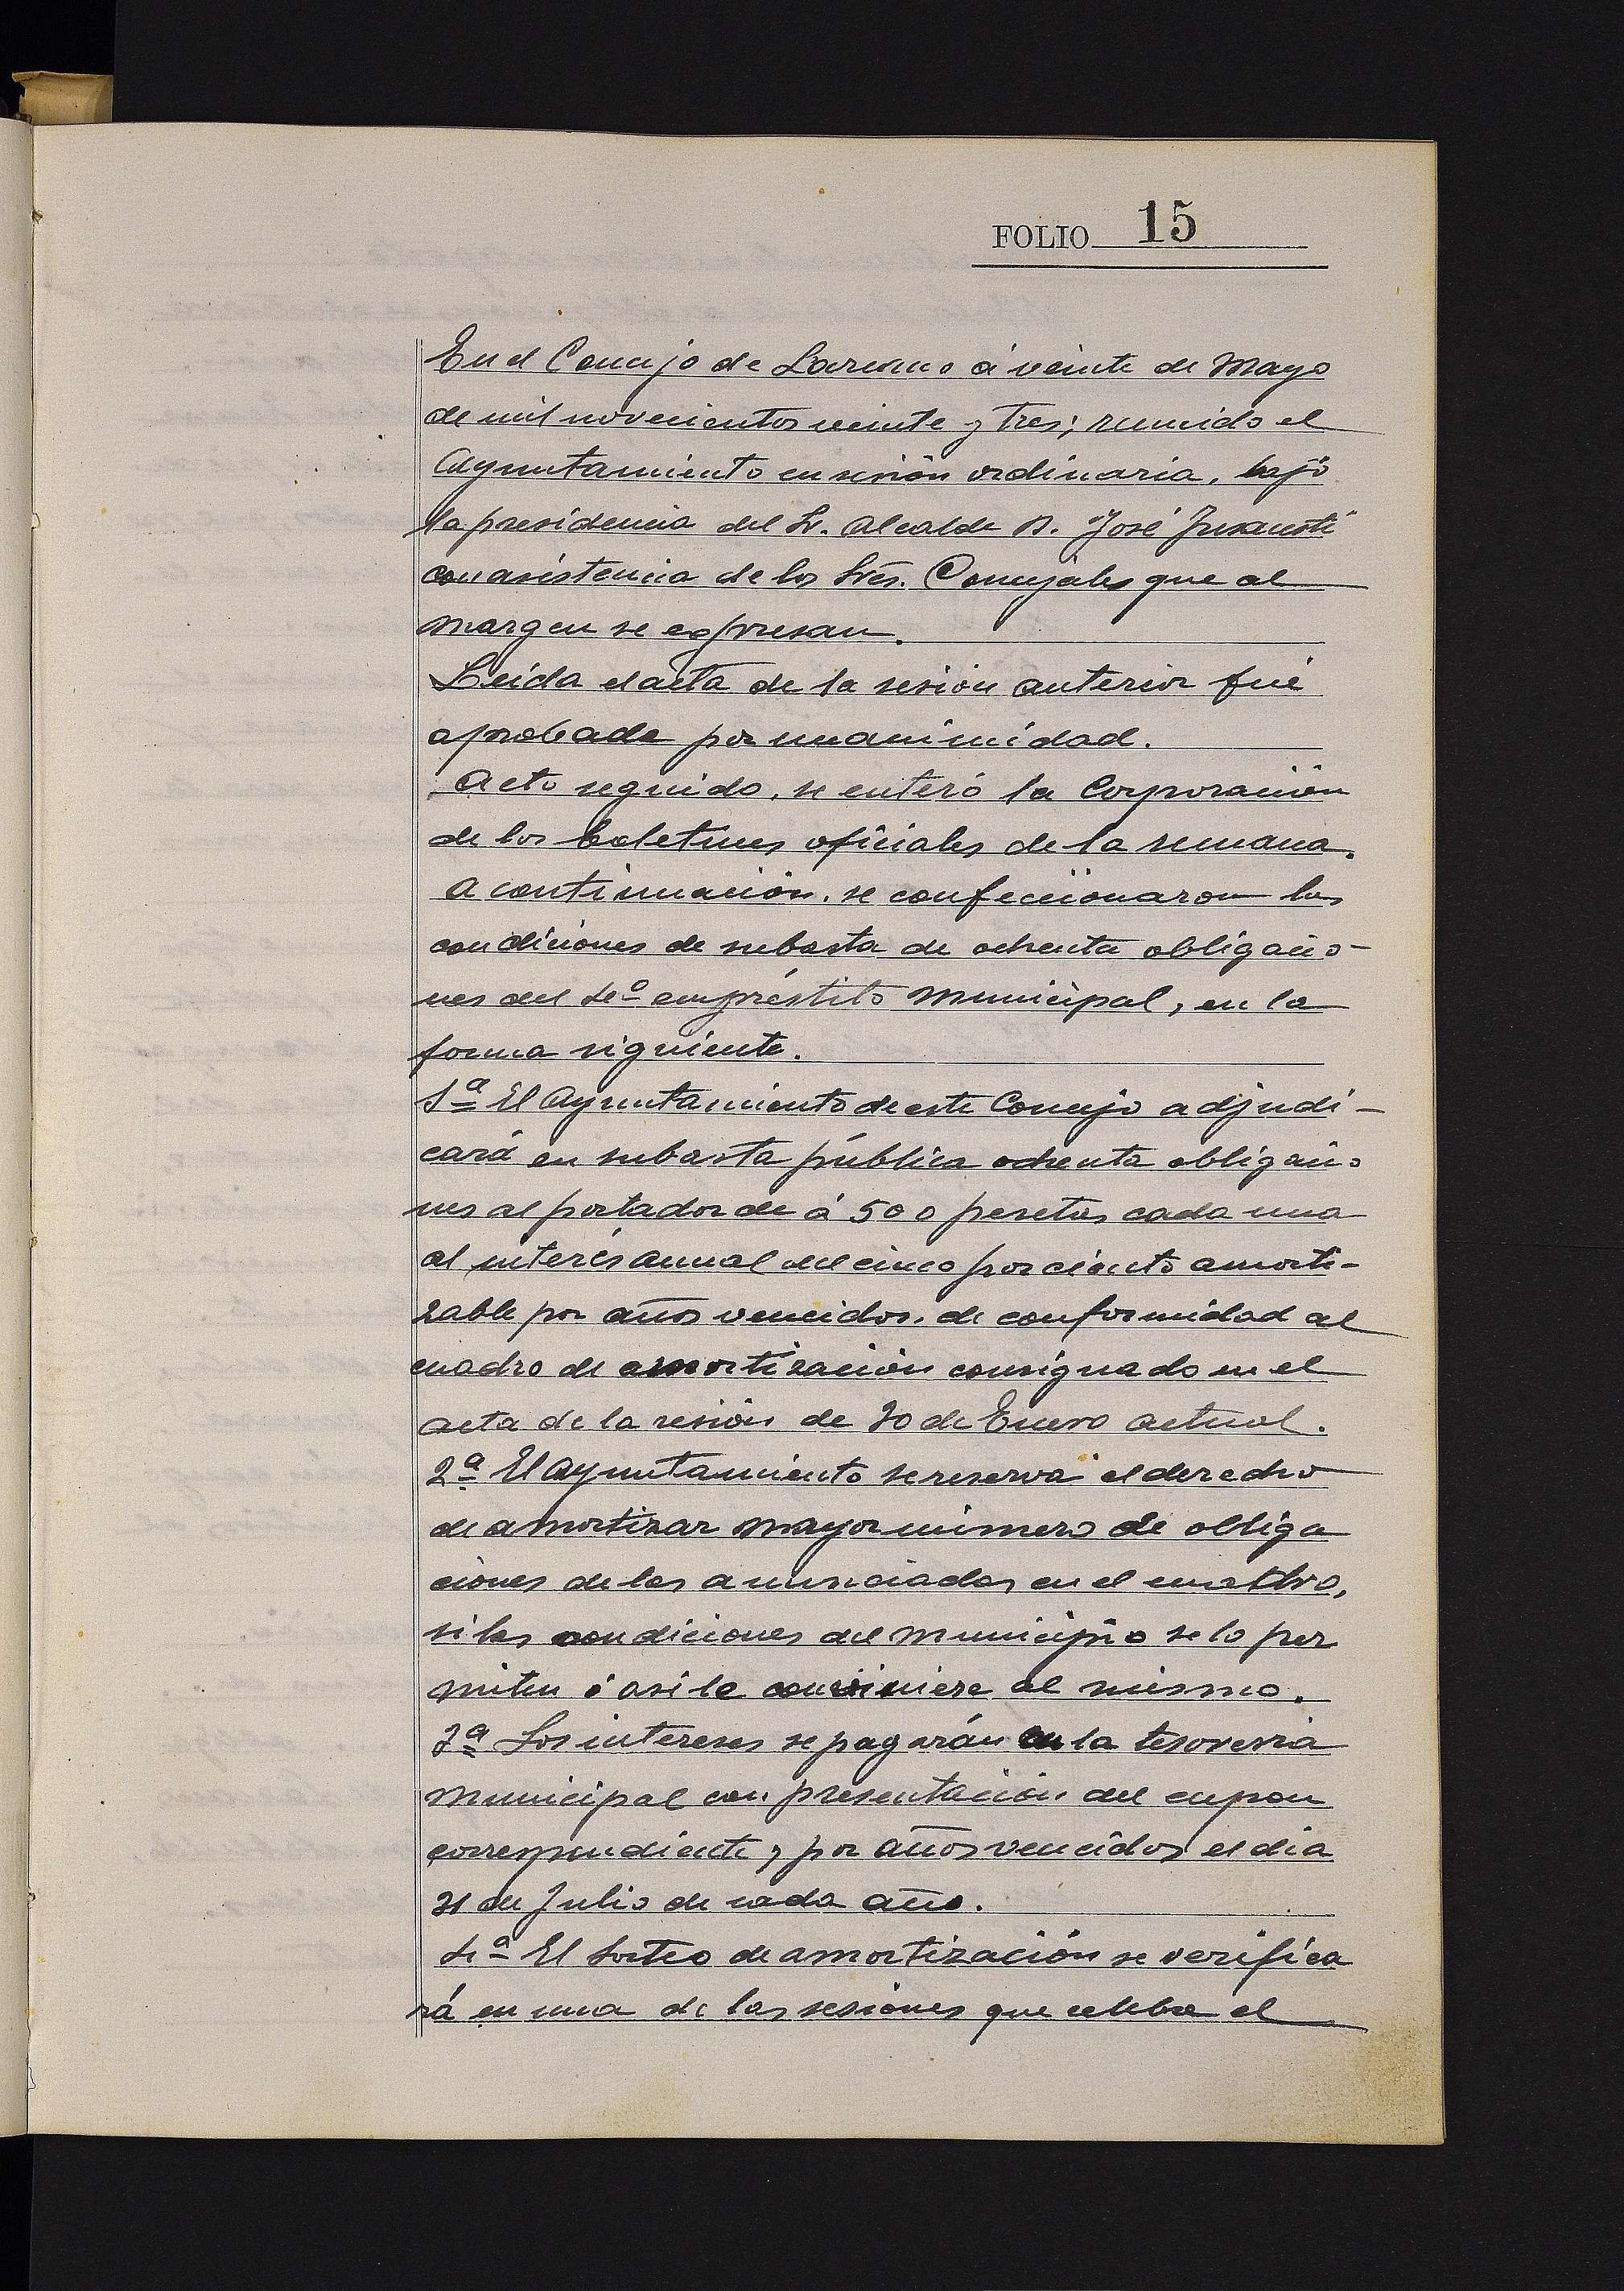 FOLIO 15
En el Concejo de Lareano á veinte de Mayo
de mil novecientos veinte y tres; reunido el
Ayuntamiento en sesión ordinaria, bajo
la presidencia del Sr. Alcalde D. José Jusausti
con asistencia de los Sres. Concejales que al
margen se expresan.
Leida el acta de la sesión anterior fué
aprobada por unanimidad.
Acto seguido, se enteró la Corporación
de los boletines oficiales de la semana.
A continuación, se confeccionaron las
condiciones de subasta de ochenta obligacio-
nes del 4º empréstito Municipal, en la
forma siguiente.
1ª El Ayuntamiento de este Concejo adjudi-
cará en subasta pública ochenta obligacio-
nes al portador de á 500 pesetas cada una
al interés anual del cinco por ciento amorti-
zable por años vencidos, de conformidad al
cuadro de amortización consignado en el
acta de la sesión de 30 de Enero actual.
2ª El Ayuntamiento se reserva el derecho
de amortizar mayor número de obliga
ciones de las anunciadas en el cuadro,
si las condiciones del Municipio se lo per
miten ó asi le conviniere al mismo.
3ª Los intereses se pagarán en la tesoreria
Municipal con presentación del cupon
correspondiente y por años vencidos el dia
31 de Julio de cada año.
4ª El Sorteo de amortización se verifica
rá en una de las sesiones que celebre el